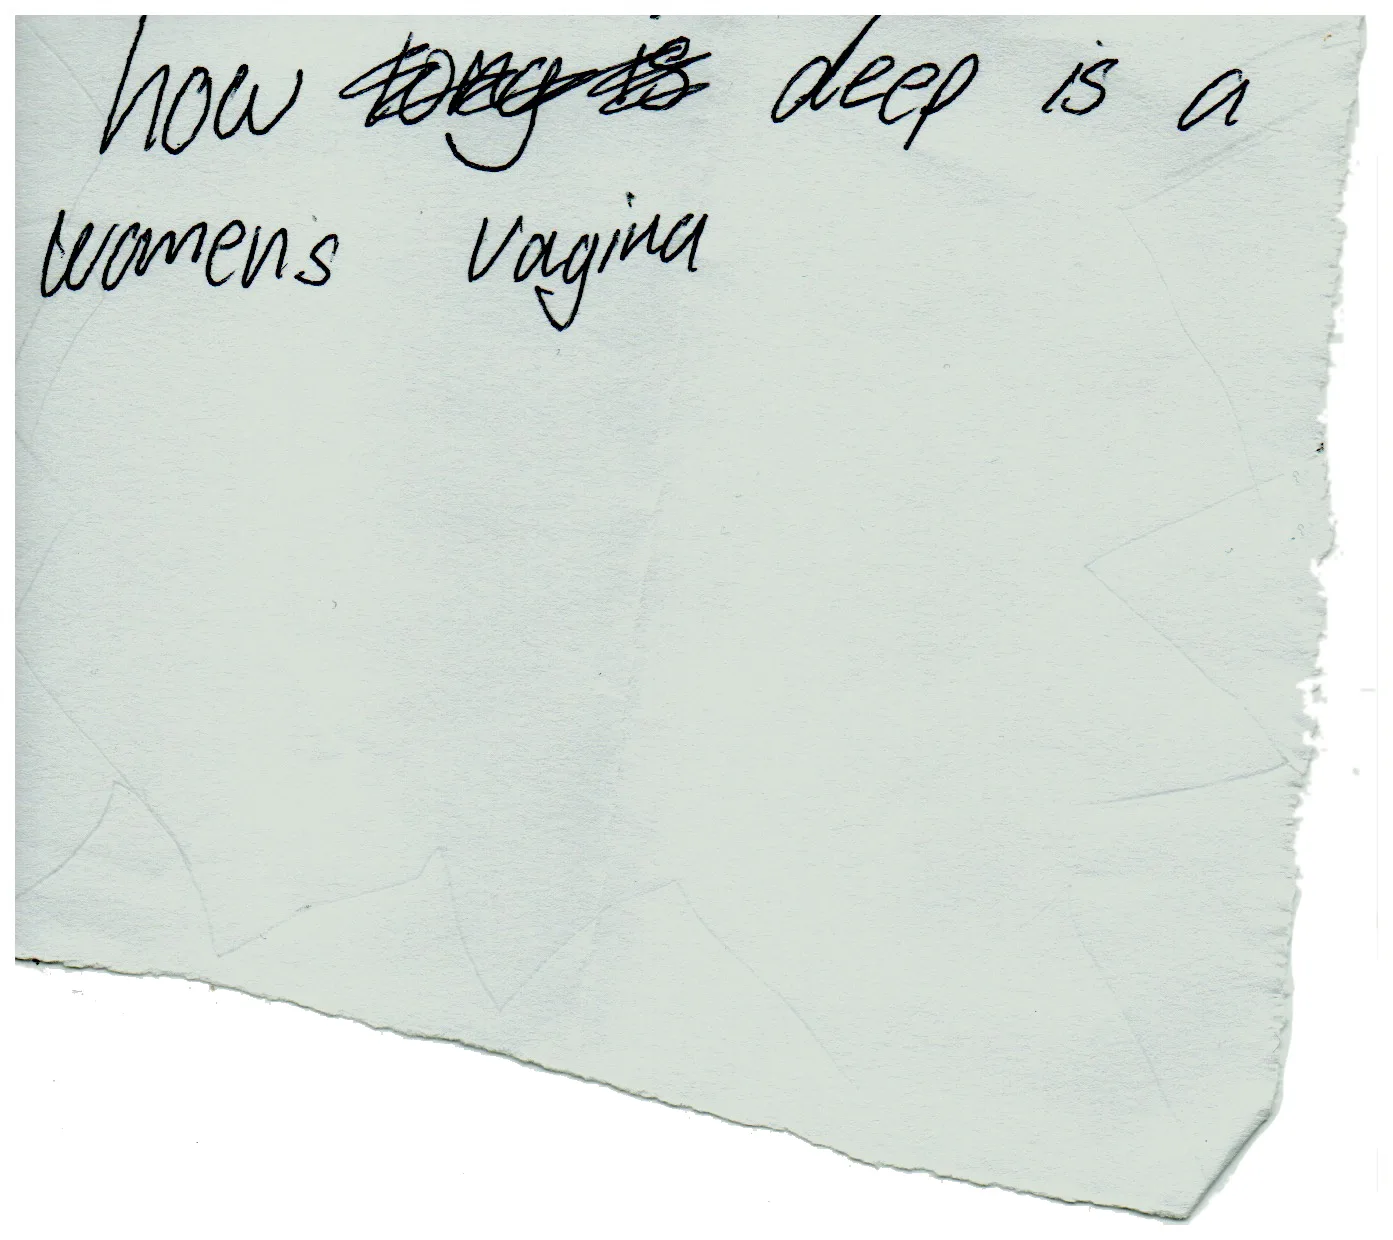 how long is deep is a
women's vagina